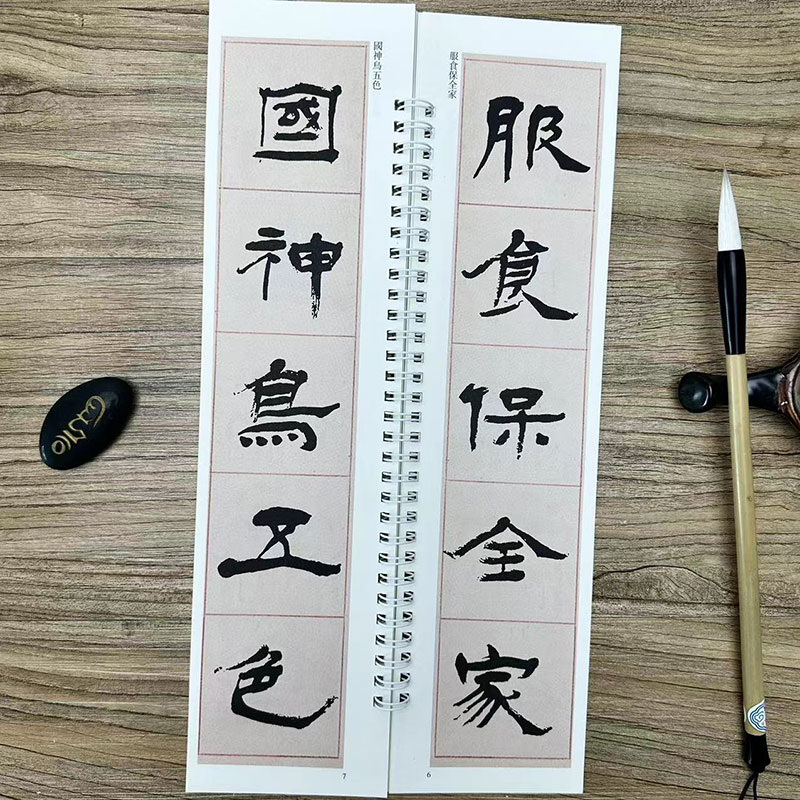 服食保全家
服食保全家
6
國神鳥五色
國神鳥五色
7